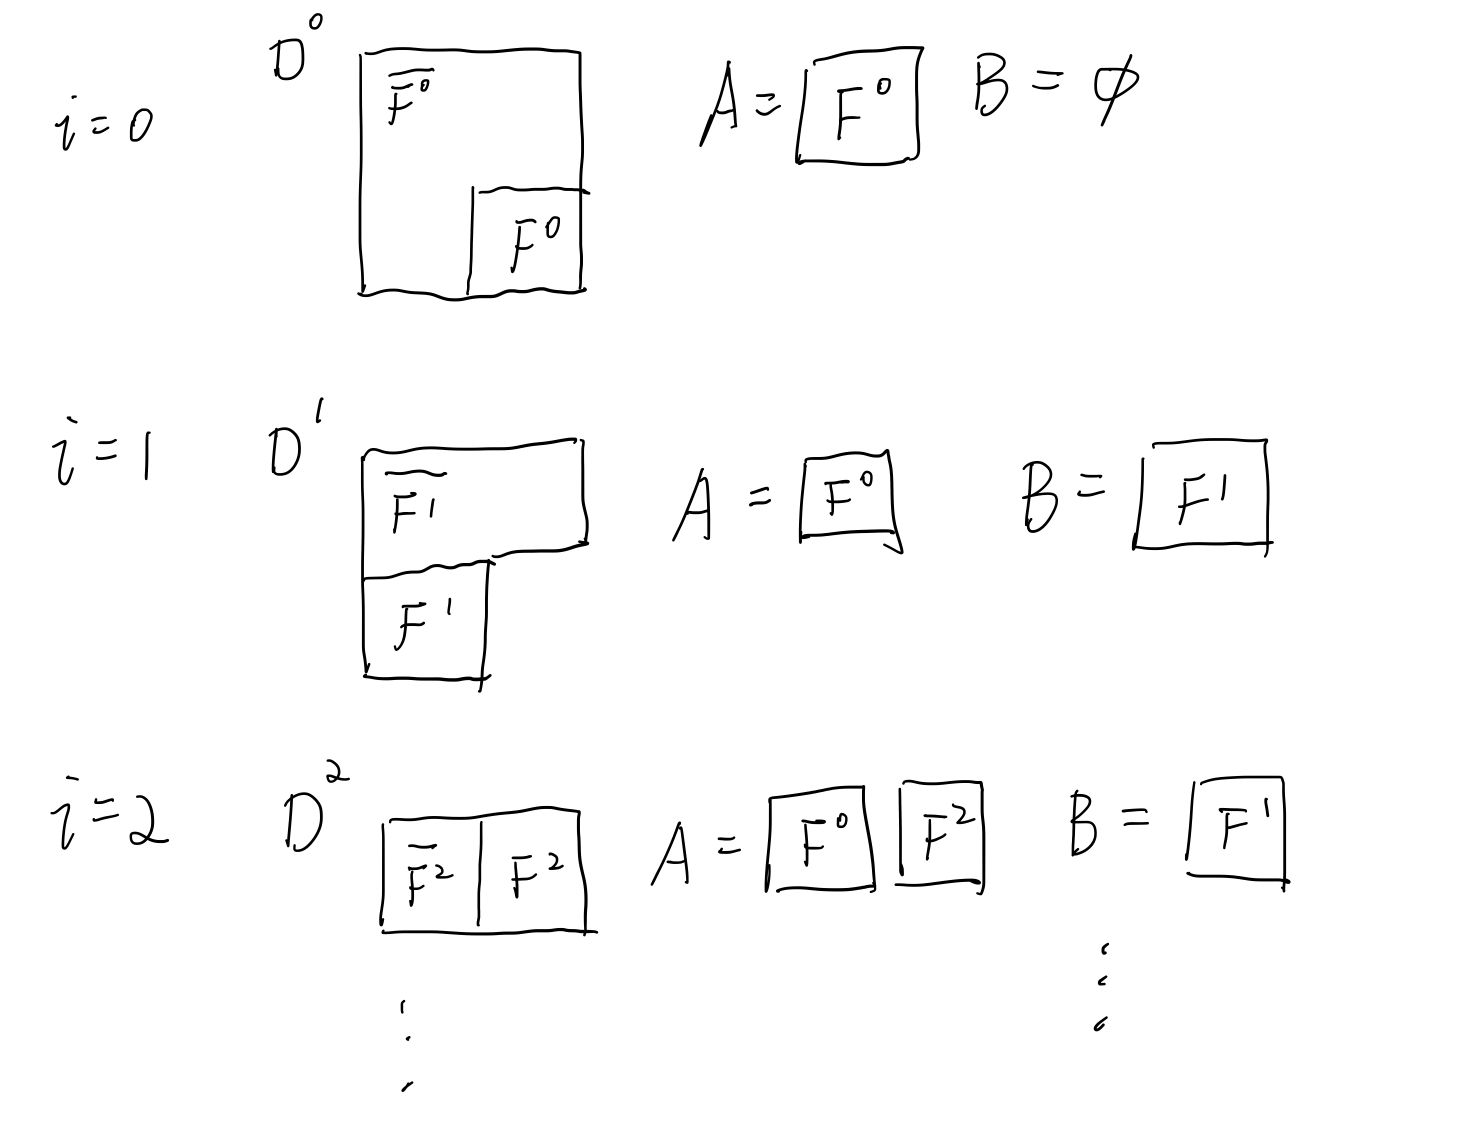 i=0 D⁰ F̅⁰ F⁰ A= F⁰ B=∅
i=1 D¹ F̅¹ F¹ A= F⁰ B= F¹
i=2 D² F̅² F² A= F⁰ F² B= F¹